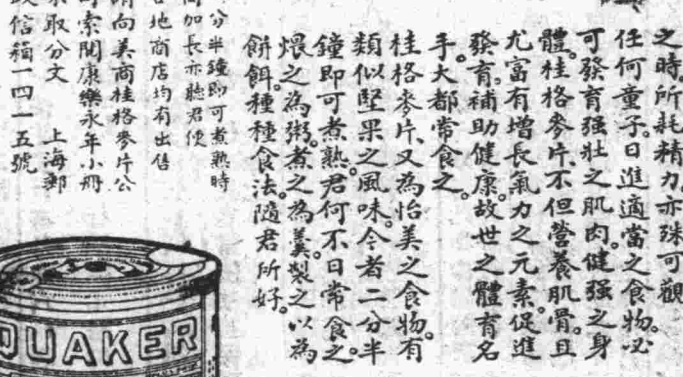 之時。所耗精力。亦殊可觀。
任何童子。日進適當之食物。必
可發育强壯之肌肉。健强之身
體。桂格麥片。不但營養肌骨。且
尤富有增長氣力之元素。促進
發育。補助健康。故世之體育名
手。大都常食之。
桂格麥片。又為怡美之食物。有
類似堅果之風味。今者二分半
鐘即可煮熟。君何不日常食之。
煨之為粥。煮之為羹。製之以為
餅餌。種種食法。隨君所好。
分半鐘即可煮熟時
加長亦聽君便
地商店均有出售
向美商桂格麥片公
索閱康樂永年小冊
取分文 上海郵
政信箱一四一五號
QUAKER